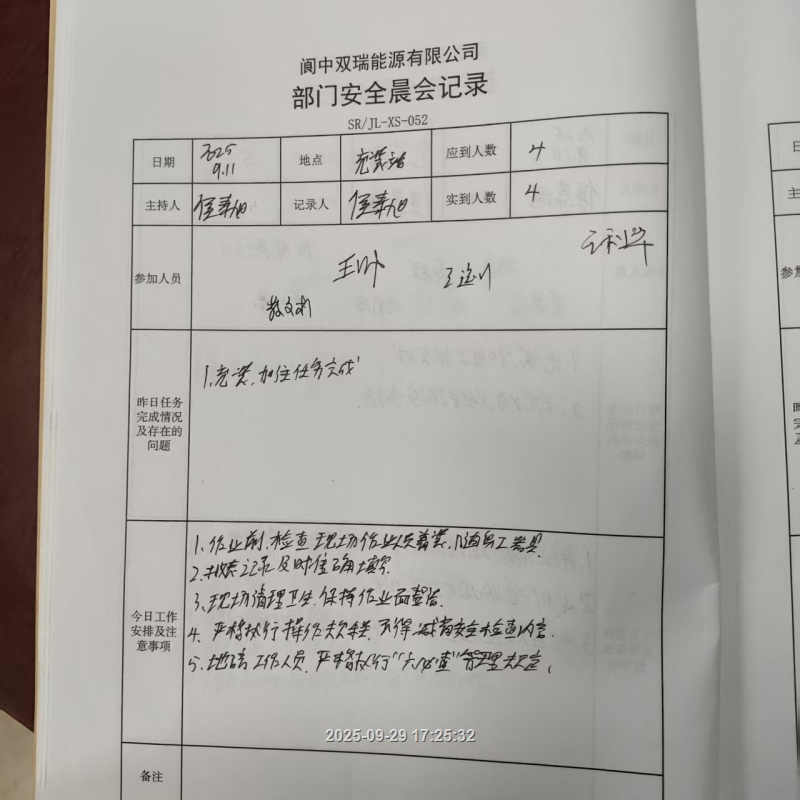 阆中双瑞能源有限公司
部门安全晨会记录
SR/JL-XS-052
日期 2025 9.11 地点 充装站 应到人数 4
主持人 记录人 实到人数 4
参加人员
昨日任务
完成情况
及存在的
问题
1、充装、加注任务完成
今日工作
安排及注
意事项
1、作业前、检查现场作业人员着装、随身工器具
2、记录及时准确填写
3、现场清理卫生、保持作业面整洁
4、严格执行操作 不得减省安全检查内容
5、地磅工作人员、严格执行“六必查”管理规定、
备注
2025-09-29 17:25:32